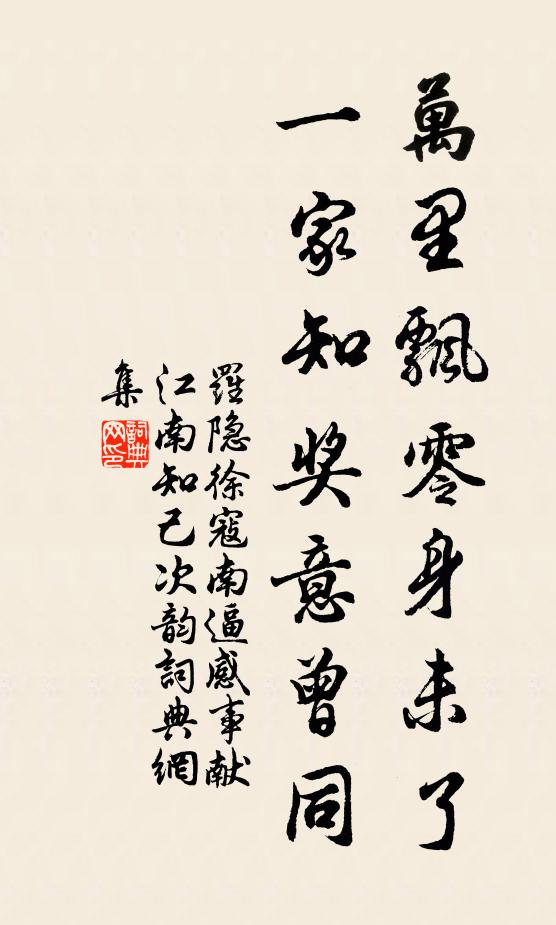 萬里飄零身未了
一家知奖意曾同
羅隐徐寇南逼感事献
江南知己次韵詞典網
集
詞典網印